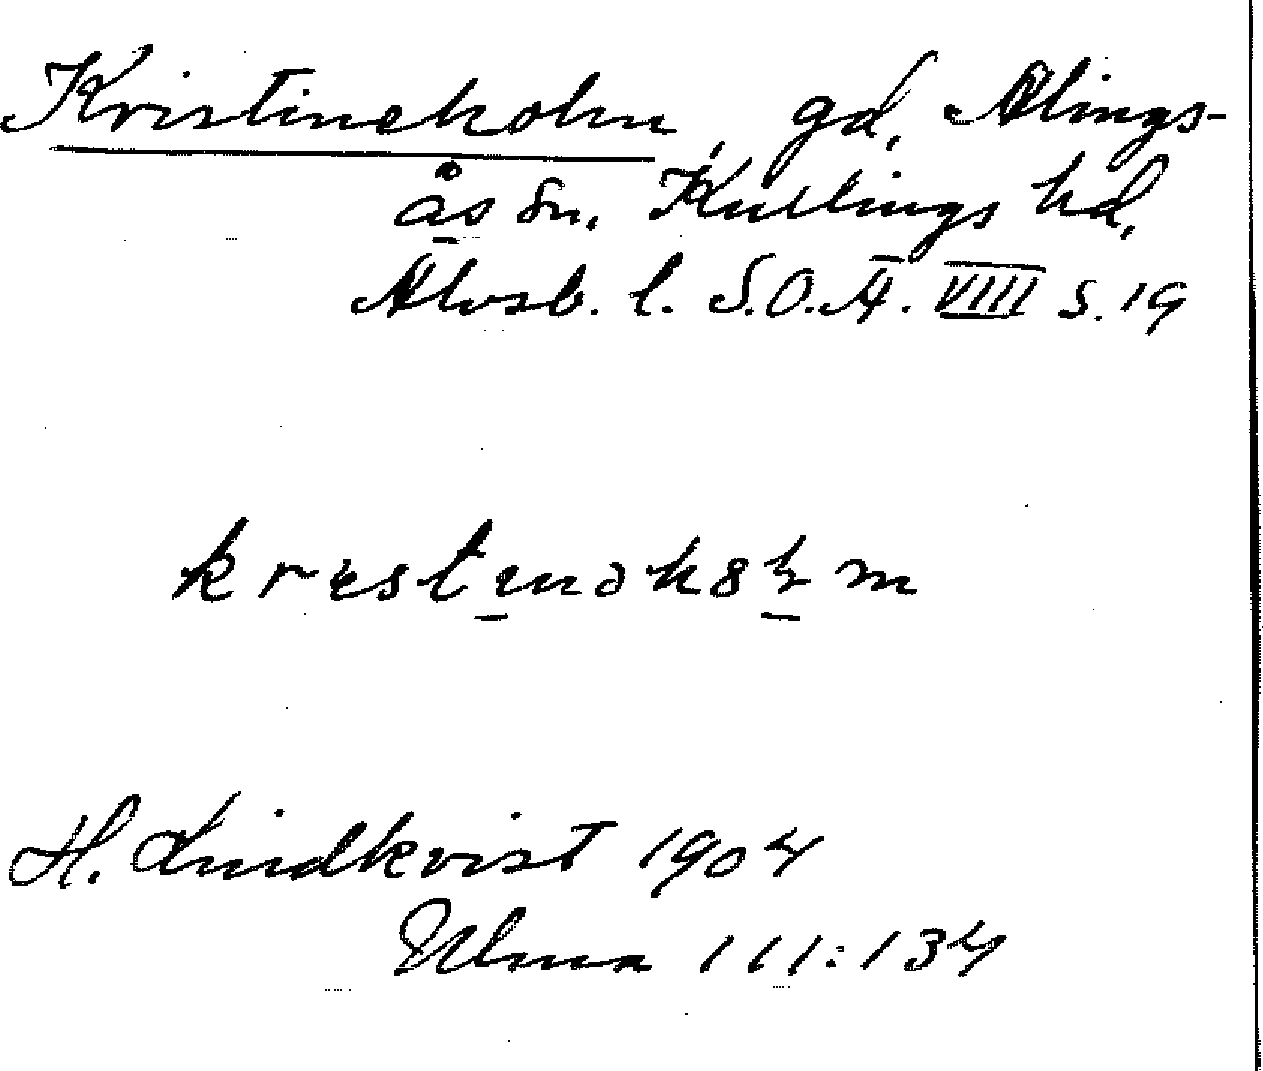 Kristineholm, gd, Alings-
ås sn, Kullings hd,
Älvsb. l. S.O.Ä. VIII s. 19
H. Lindkvist 1904
Ulma 111:134